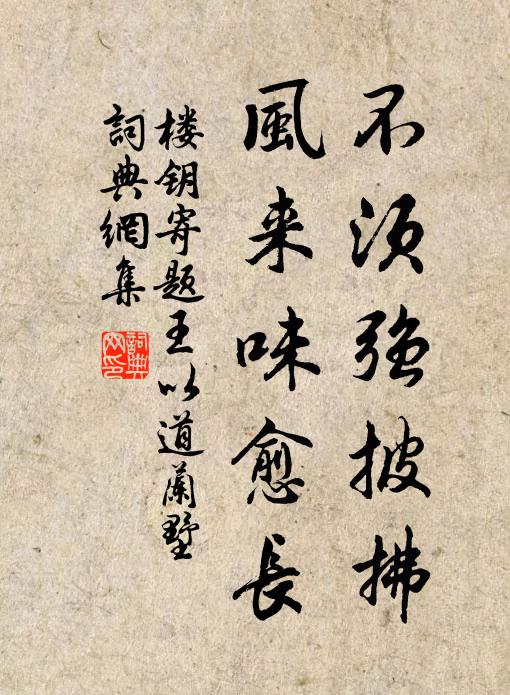 不须強披拂
風来味愈長
楼钥寄题王以道蘭墅
詞典網集
詞典
网印